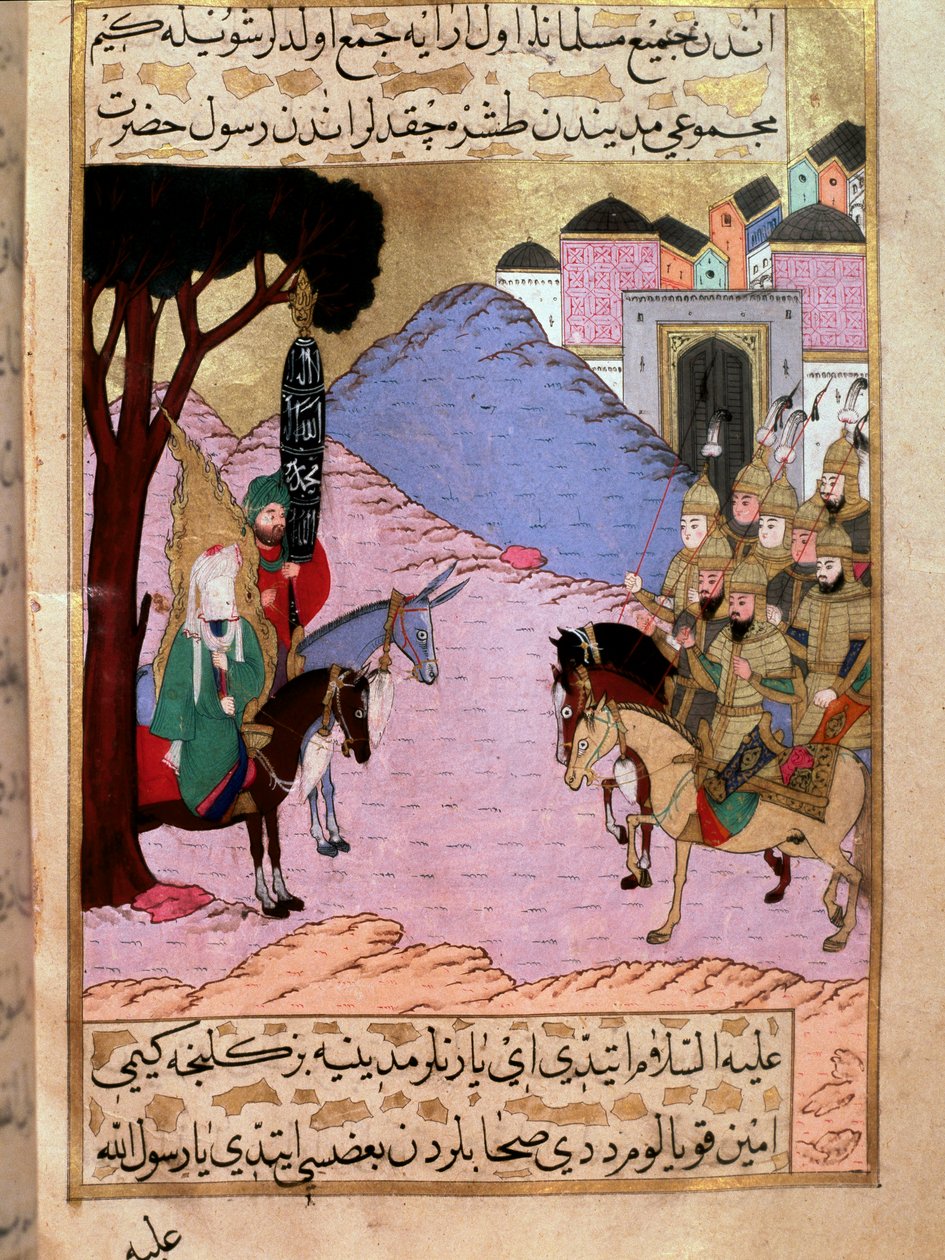 اندن جميع مسلمانلر اول ارايه جمع اولدلر شويله كيم
مجموعي مدينه‌دن طشره چقدلر اندن رسول حضرت
الله
محمد
عليه السلام ايتدي اي يارنلر مدينيه بز كلنجه كيمي
امين قويالوم ددي صحابلردن بعضسي ايتدي يا رسول الله
عليه